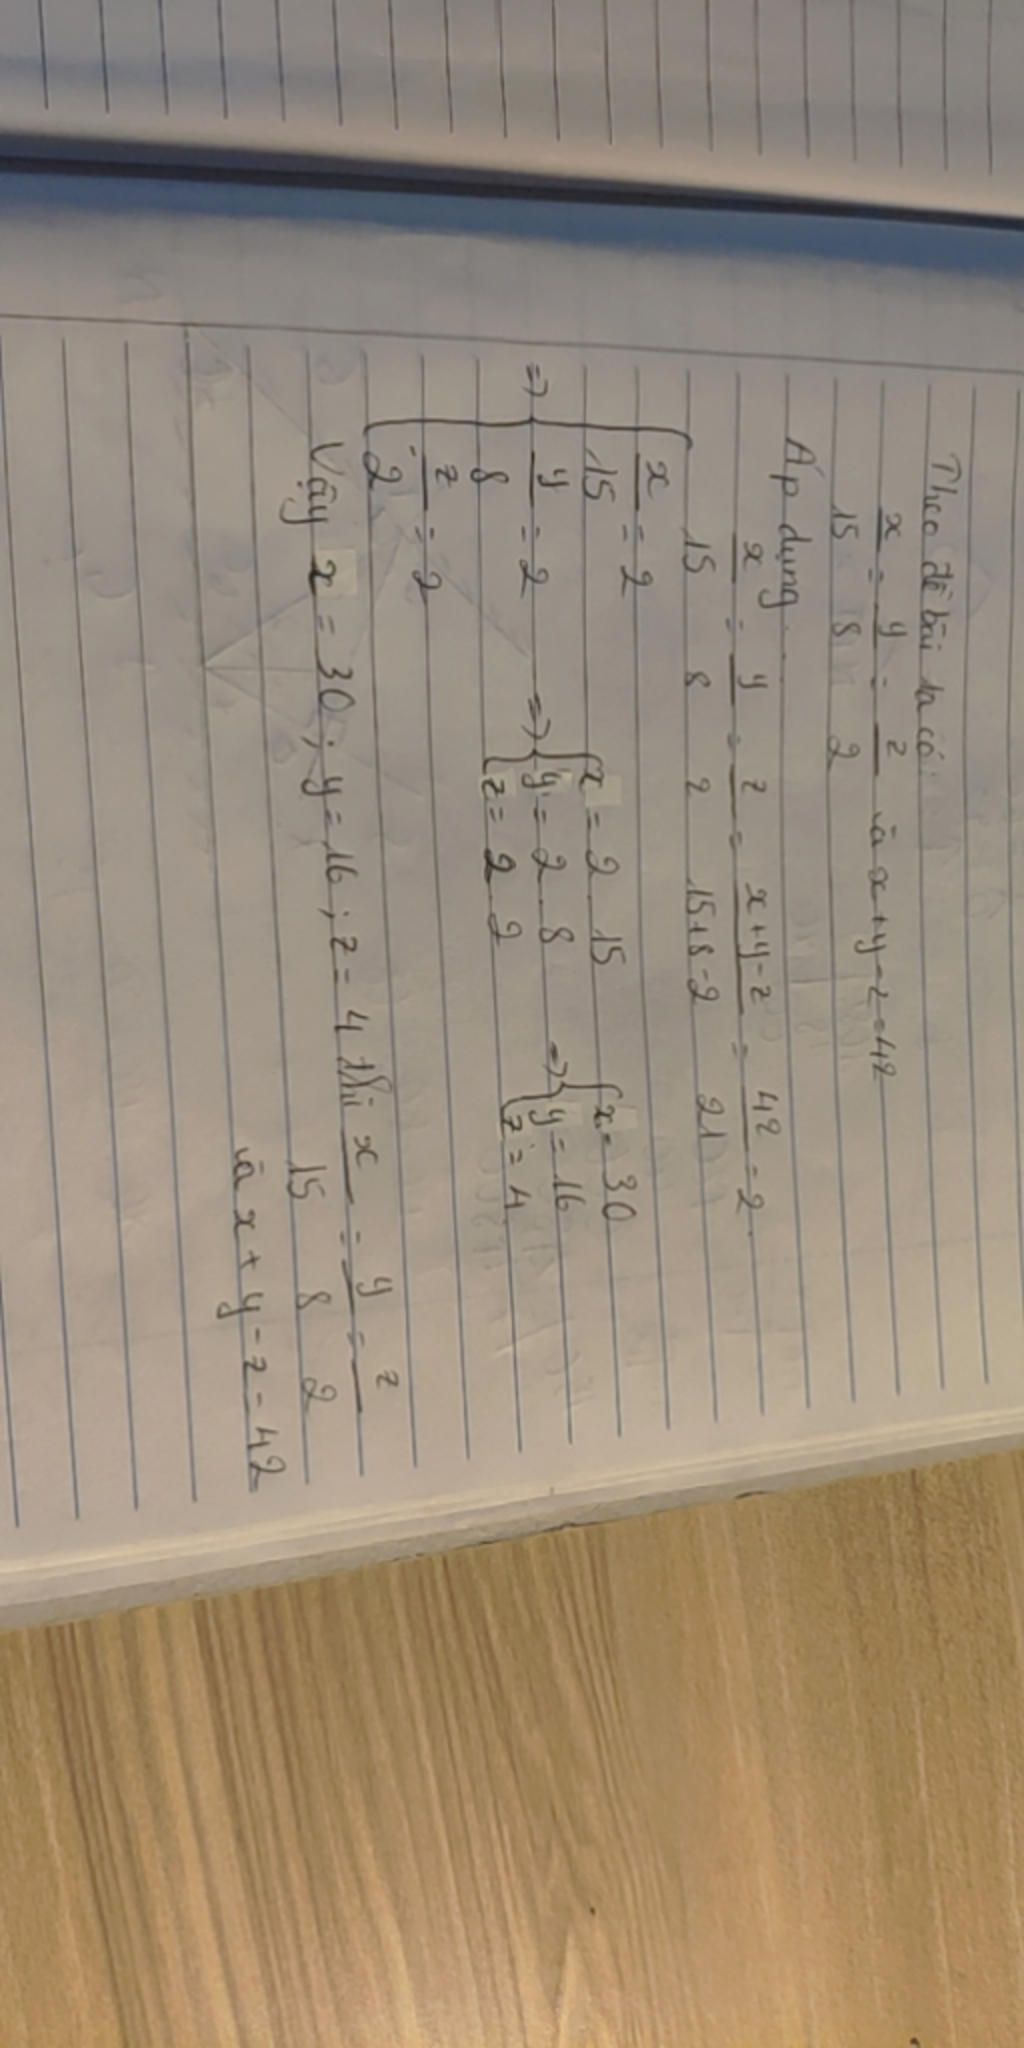 Theo đề bài ta có
x/15 = y/8 = z/2 và x+y-z=42
Áp dụng
x/15 = y/8 = z/2 = x+y-z/15+8-2 = 42/21 = 2
=> { x/15 = 2 => { x = 2 15 => { x = 30
y/8 = 2 y = 2 8 y = 16
z/2 = 2 z = 2 2 z = 4
Vậy x = 30; y = 16; z = 4 thì x/15 = y/8 = z/2
và x + y - z = 42